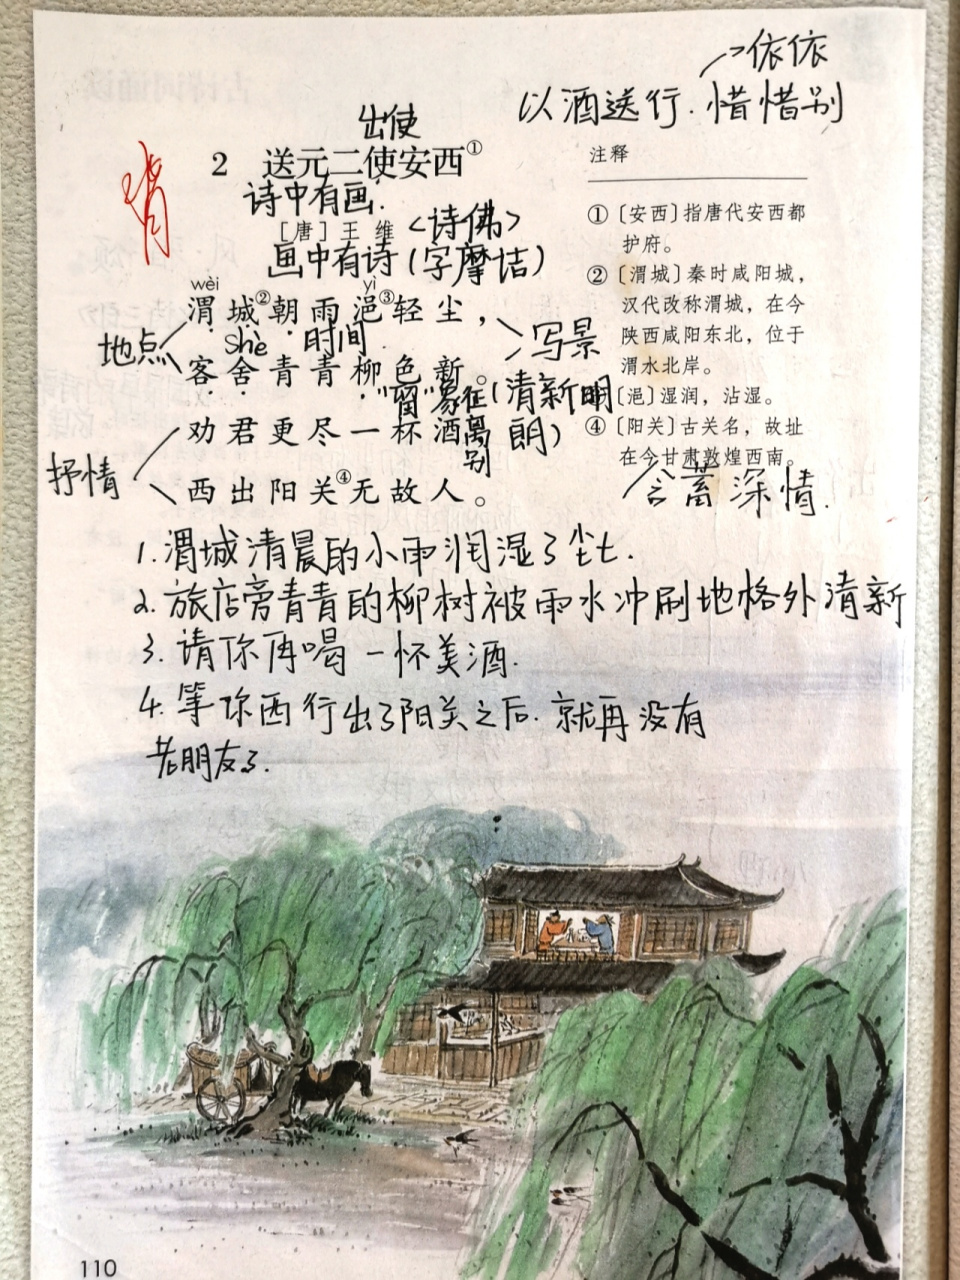 依依
以酒送行.惜惜别
出使
2 送元二使安西①
诗中有画.
[唐]王维<诗佛>
画中有诗(字摩诘)
wèi yì
渭城②朝雨浥③轻尘，
地点 shè 时间 写景
客舍青青柳色新。
"留"象征(清新明朗)
劝君更尽一杯酒
离别
抒情
西出阳关④无故人。
注释
①〔安西〕指唐代安西都
护府。
②〔渭城〕秦时咸阳城，
汉代改称渭城，在今
陕西咸阳东北，位于
渭水北岸。
〔浥〕湿润，沾湿。
④〔阳关〕古关名，故址
在今甘肃敦煌西南。
含蓄深情.
1.渭城清晨的小雨润湿了尘土.
2.旅店旁青青的柳树被雨水冲刷地格外清新
3.请你再喝一杯美酒.
4.等你西行出了阳关之后.就再没有
老朋友了.
110